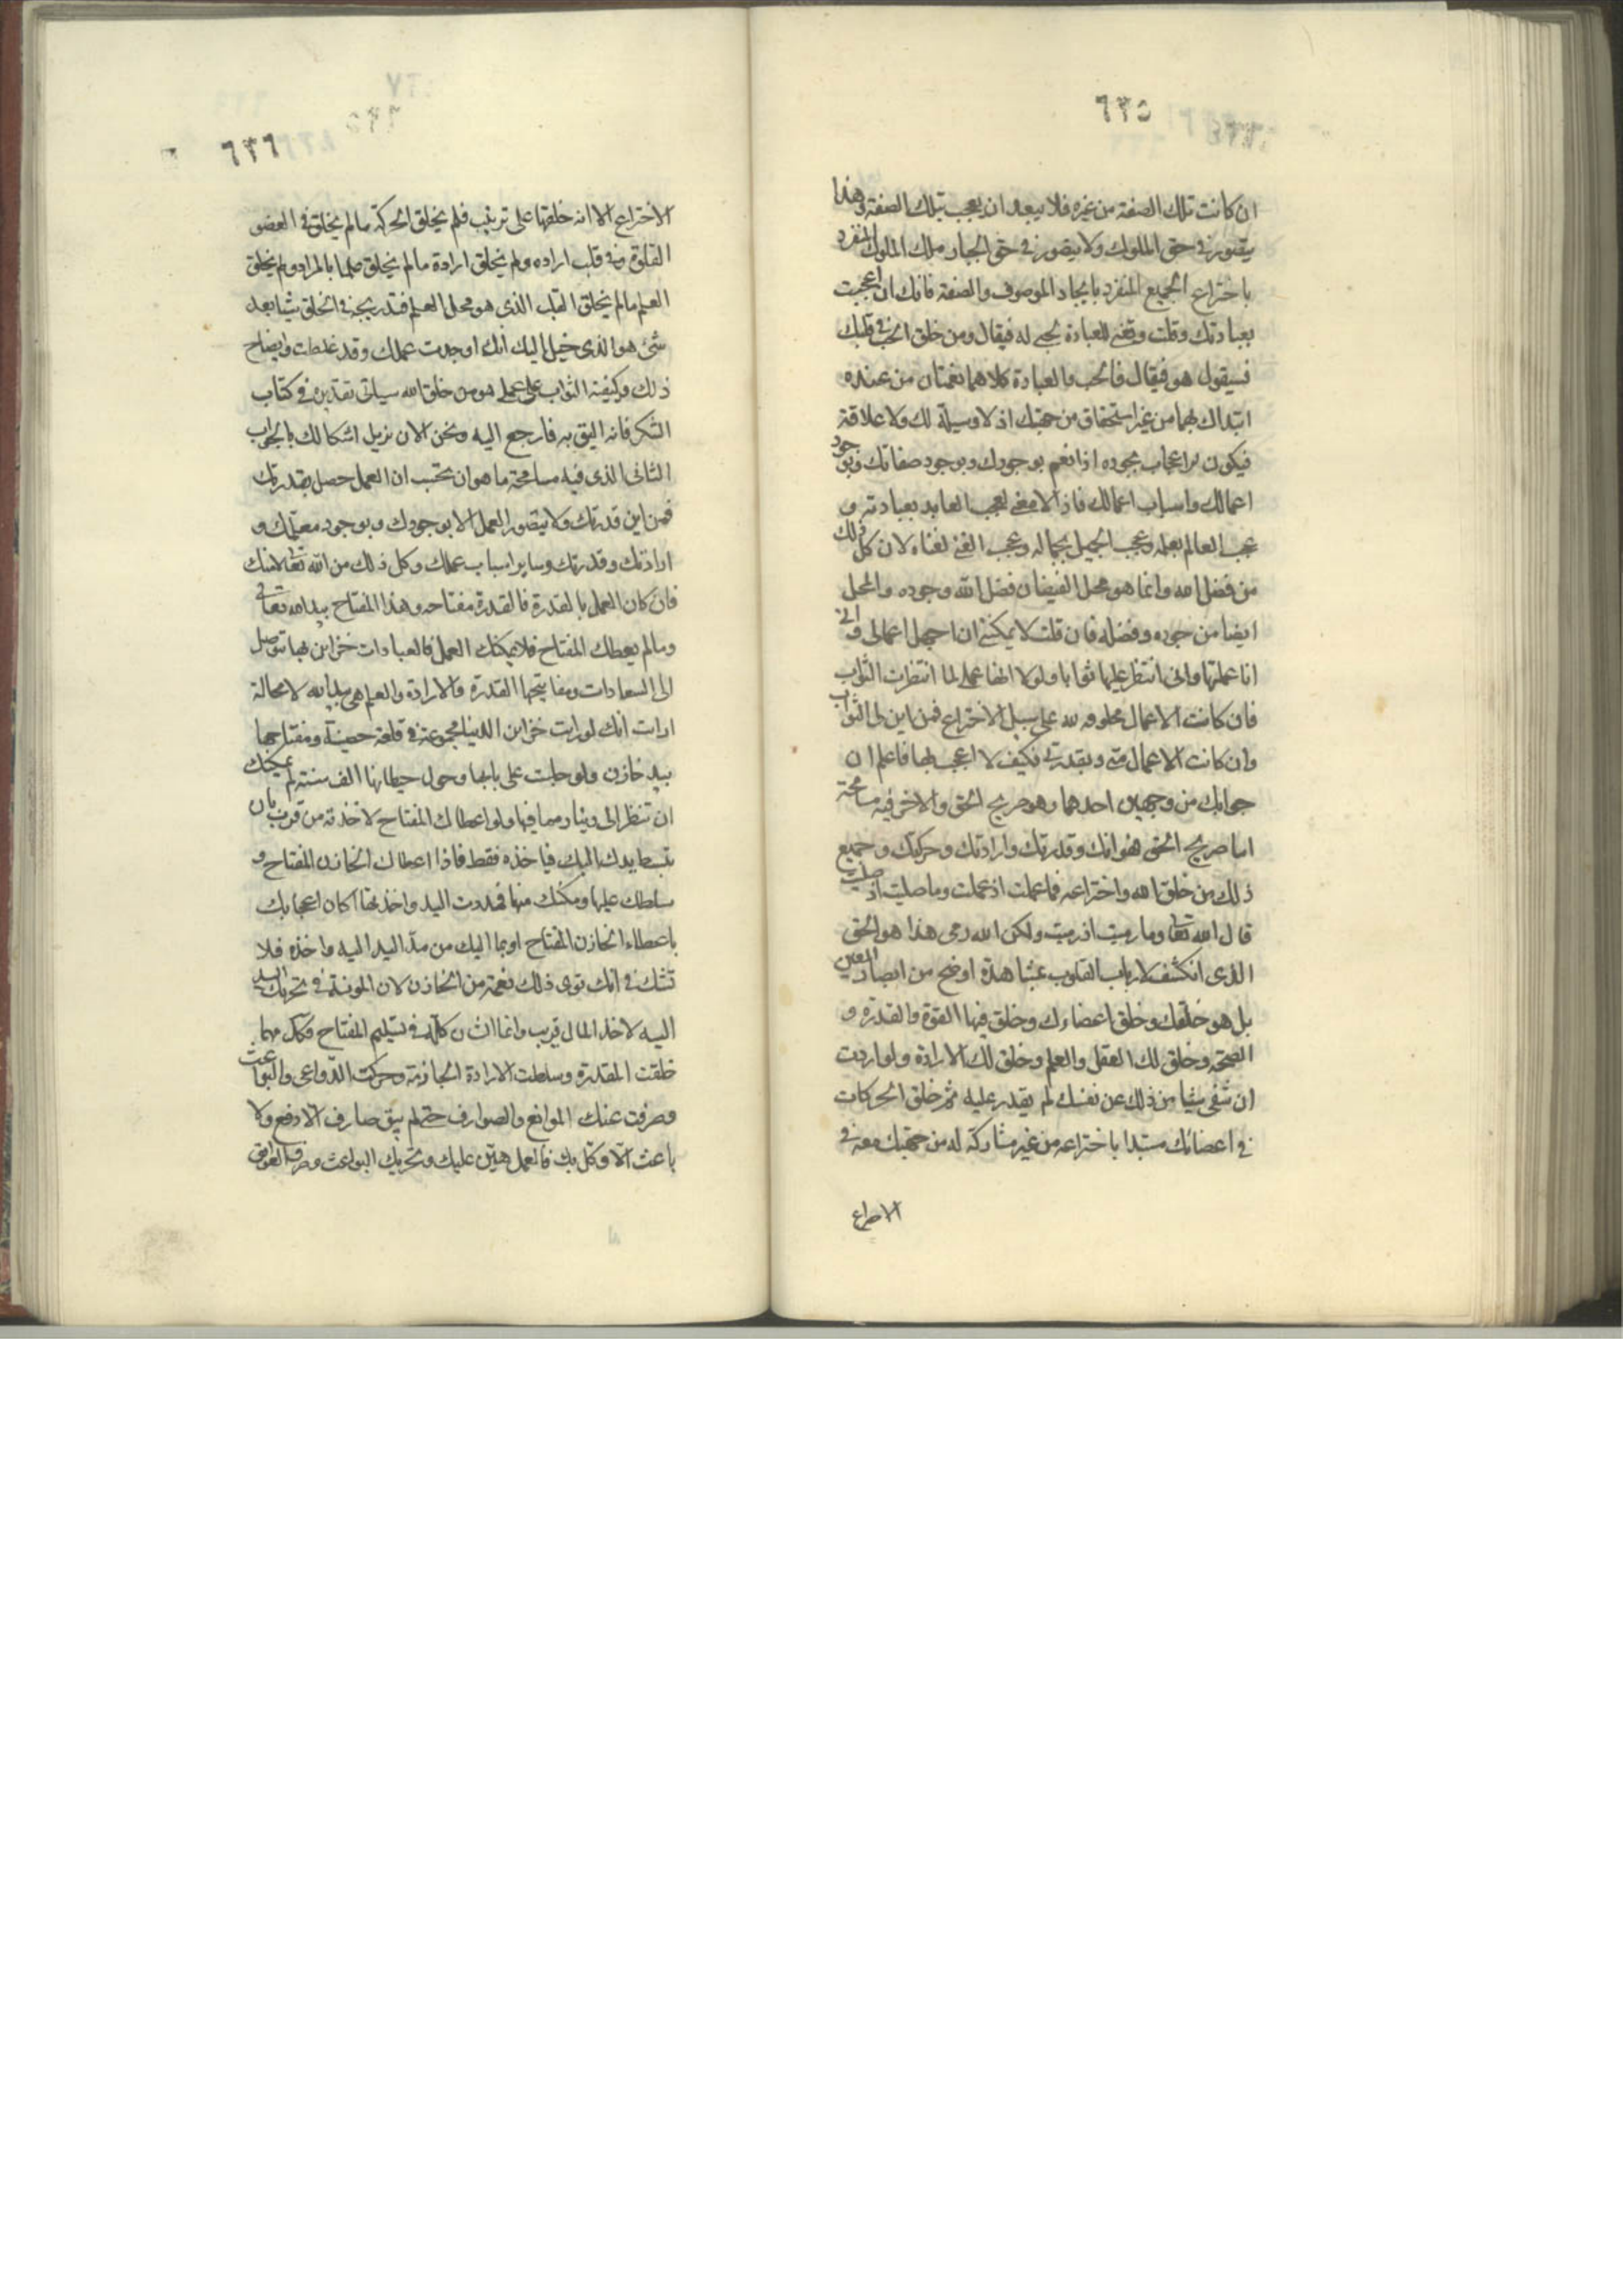 ٦٣٥
ان كانت تلك الصفة من غيره فلا يبعد ان يعجب بتلك الصفة وهذا
يتصور في حق الملوك ولا يتصور في حق الجبار ملك الملوك المنفرد
باختراع الجميع المنفرد بايجاد الموصوف والصفة فانك ان اعجبت
بعبادتك وقلت وفقني للعبادة لحبي له فيقال ومن خلق الحب في قلبك
فسيقول هو فيقال فالحب والعبادة كلاهما نعمتان من عنده
ابتداك بهما من غير استحقاق من جهتك اذ لا وسيلة لك ولا علاقة
فيكون الاعجاب بجوده اذ انعم بوجودك وبوجود صفاتك وبوجود
اعمالك واسباب اعمالك فاذا لا معنى لعجب العابد بعبادته و
عجب العالم بعلمه وعجب الجميل بجماله وعجب الغني لغناه لان كل ذلك
من فضل الله وانما هو محل لفيضان فضل الله وجوده والمحل
ايضا من جوده وفضله فان قلت لا يمكنني ان اجهل اعمالى واني
انا عملتها وانى انتظر عليها ثوابا ولولا انها عملي لما انتظرت الثواب
فان كانت الاعمال مخلوقه لله على سبيل الاختراع فمن اين لى الثواب
وان كانت الاعمال منى وبقدرتى فكيف لا اعجب بها فاعلم ان
جوابك من وجهين احدهما وهو صريح الحق والاخر فيه مسامحة
اما صريح الحق فهو انك وقدرتك وارادتك وحركتك وجميع
ذلك من خلق الله واختراعه فما عملت اذ عملت وما صليت اذ صليت
قال الله تعا وما رميت اذ رميت ولكن الله رمى هذا هو الحق
الذى انكشف لارباب القلوب بمشاهدة اوضح من ابصار العين
بل هو خلقك وخلق اعضاءك وخلق فيها القوة والقدرة و
الصحة وخلق لك العقل والعلم وخلق لك الارادة ولو اردت
ان تنفى شيئا من ذلك عن نفسك لم يقدر عليه ثم خلق الحركات
في اعضائك مستبدا باختراعه من غير مشاركة له من جهتك معه في
الاختراع
٦٣٦
الاختراع الا انه خلقها على ترتيب فلم يخلق الحركة ما لم يخلق في العضو
القوة وفي قلب اراده ولم يخلق ارادة ما لم يخلق علما بالمراد ولم يخلق
العلم ما لم يخلق القلب الذى هو محل العلم فتدريجه في الخلق شيئا بعد
شئ هو الذى خيل اليك انك اوجدت عملك وقد غلطت وايضاح
ذلك وكيفية الثواب على عمل هو من خلق الله سياتى تقديره في كتاب
الشكر فانه اليق به فارجع اليه ونحن الان نزيل اشكالك بالجواب
الثانى الذى فيه مسامحة ما هو ان تحتسب ان العمل حصل بقدرتك
فمن اين قدرتك ولا يتصور العمل الا بوجودك وبوجود عملك و
ارادتك وقدرتك وساير اسباب عملك وكل ذلك من الله تعا لا منك
فان كان العمل بالقدرة فالقدرة مفتاحه وهذا المفتاح بيد الله تعالى
وما لم يعطك المفتاح فلا يمكنك العمل فالعبادات خزاين بها تتوصل
الى السعادات ومفاتيحها القدرة والارادة والعلم هى بيد الله لا محالة
ارايت انك لو رايت خزاين الدنيا مجموعة في قلعة حصينة ومفتاحها
بيد خازن ولو جلست على بابها وحول حيطانها الف سنة لم يمكنك
ان تنظر الى دينار مما فيها ولو اعطاك المفتاح لاخذته من قريب بان
تبسط يدك اليك فياخذه فقط فاذا اعطاك الخازن المفتاح و
سلطك عليها ومكنك منها فمددت اليد واخذتها اكان اعجابك
باعطاء الخازن المفتاح او بما اليك من مد اليد اليه واخذه فلا
تشك في انك ترى ذلك نعمة من الخازن لان المونة في تحريك اليد
اليه لاخذ المال قريب وانما الشان كله في تسليم المفتاح فكل مهما
خلقت القدرة وسلطت الارادة الجازمة وحركت الدواعى والبواعث
وصرفت عنك الموانع والصوارف حتى لم يبق صارف الا دفع ولا
باعث الا وكل بك فالعمل هين عليك وتحريك البواعث وصرف العوايق